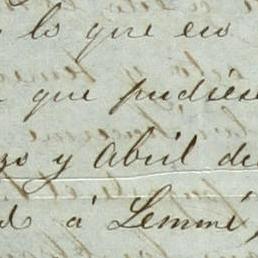 lo que es
que pudiese
zo y Abril de
d á Lemmé,